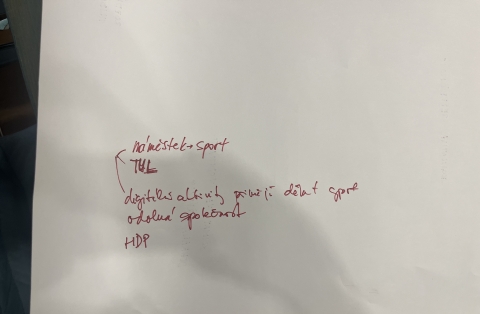 náměstek → sport
digitální aktivity přiměji dělat sport
odolná společnost
HDP